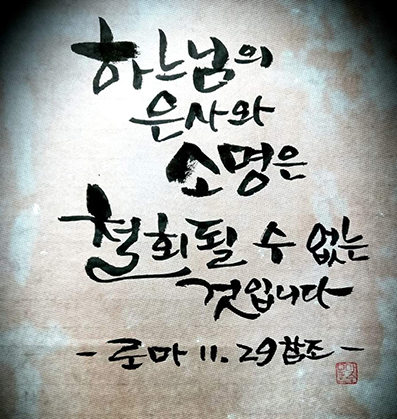 하느님의
은사와
소명은
철회될 수 없는
것입니다
- 로마 11. 29 참조 -